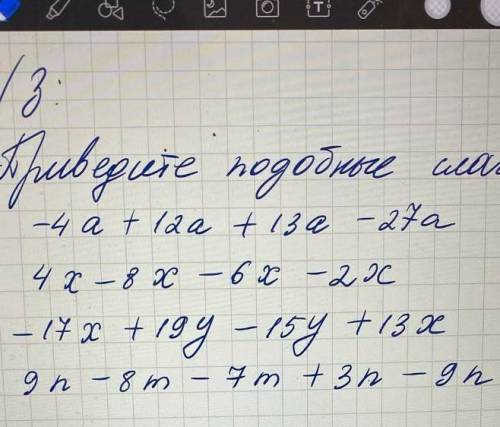 /3:
Приведите подобные слаг
-4a + 12a + 13a - 27a
4x - 8x - 6x - 2x
-17x + 19y - 15y + 13x
9n - 8m - 7m + 3n - 9n